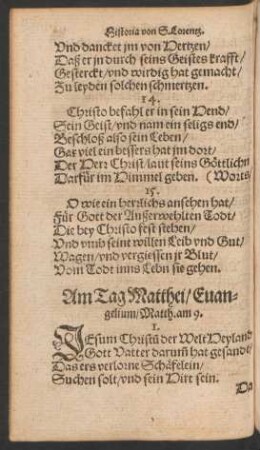 Historia von S. Lorentz.
Vnd dancket jm von Hertzen/
Daß er jn durch seins Geistes krafft/
Gesterckt/ vnd wirdig hat gemacht/
Zu leyden solchen schmertzen.
14.
Christo befahl er in sein Hend/
Sein Geist/ vnd nam ein seligs end/
Beschloß also sein Leben/
Gar viel ein bessers hat jm dort/
Der Herr Christ/ laut seins Göttlichn
Darfür im Himmel geben. (Worts
15.
O wie ein herrlichs ansehen hat/
Für Gott der Außerwehlten Todt/
Die bey Christo fest stehen/
Vnd vmb seint willen Leib vnd Gut/
Wagen/ vnd vergiessen jr Blut/
Vom Todt inns Lebn sie gehen.
Am Tag Matthei/ Euan-
gelium/ Matth. am 9.
1.
JEsum Christū der Welt Heyland
Gott Vatter darum̄ hat gesandt/
Das ers verlorne Schäfelein/
Suchen solt/ vnd sein Hirt sein.
Da